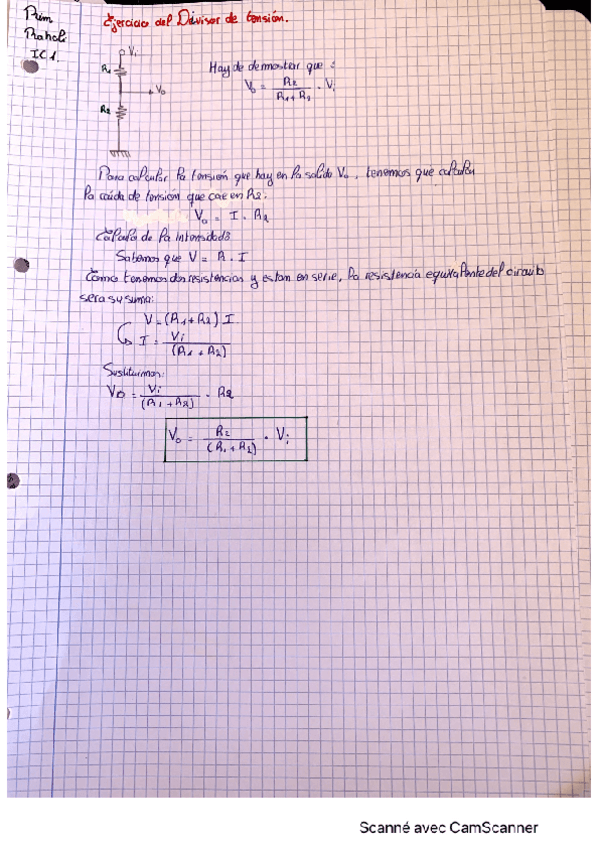 Ejercicio del Divisor de tensión.
IC1.
Vi
R1
Vo
R2
Hay de demostrar que :
Vo = R2 / R1 + R2 . Vi
Para calcular la tensión que hay en la salida Vo, tenemos que calcular
la caída de tensión que cae en R2.
Vo = I . R2
Calculo de la intensidad:
Sabemos que V = R . I
Como tenemos dos resistencias y estan en serie, la resistencia equivalente del circuito
sera su suma:
V = (R1 + R2) I
I = Vi / (R1 + R2)
Sustituimos:
Vo = Vi / (R1 + R2) . R2
Vo = R2 / (R1 + R2) . Vi
Scanné avec CamScanner